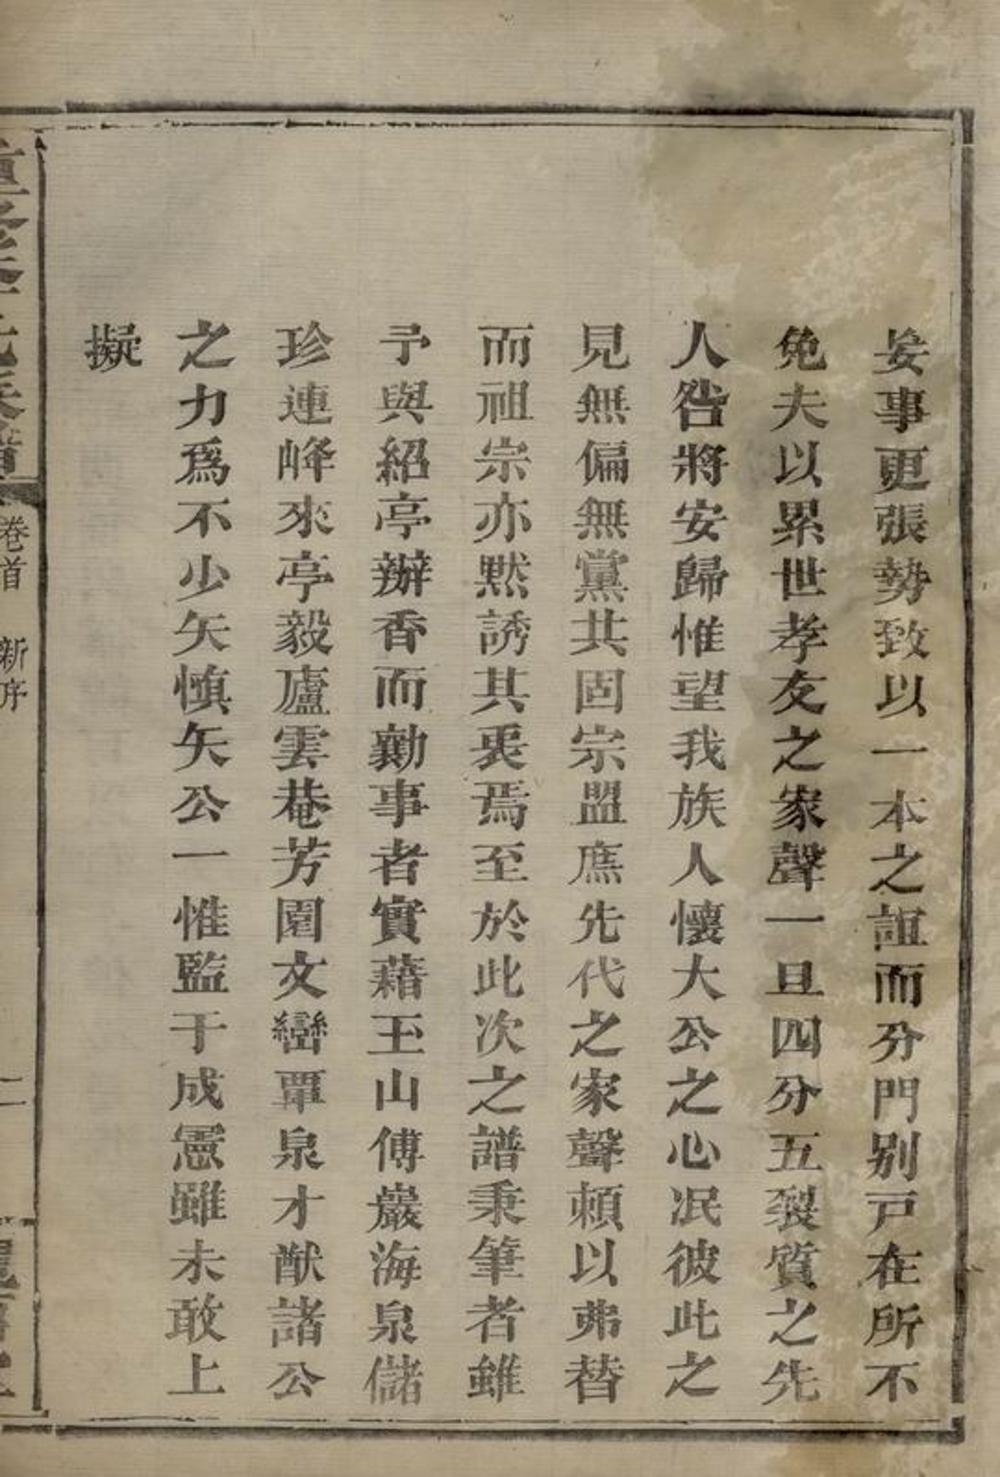 妄事更張勢致以一本之誼而分門別戸在所不
免夫以累世孝友之家聲一旦四分五裂質之先
人咎將安歸惟望我族人懷大公之心泯彼此之
見無偏無黨共固宗盟庶先代之家聲賴以弗替
而祖宗亦默誘其衷焉至於此次之譜秉筆者雖
予與紹亭辦香而勷事者實藉玉山傅巖海泉儲
珍連峰來亭毅廬雲巷芳園文巒覃泉才猷諸公
之力爲不少矢慎矢公一惟監于成憲雖未敢上
擬
卷首 新序
二